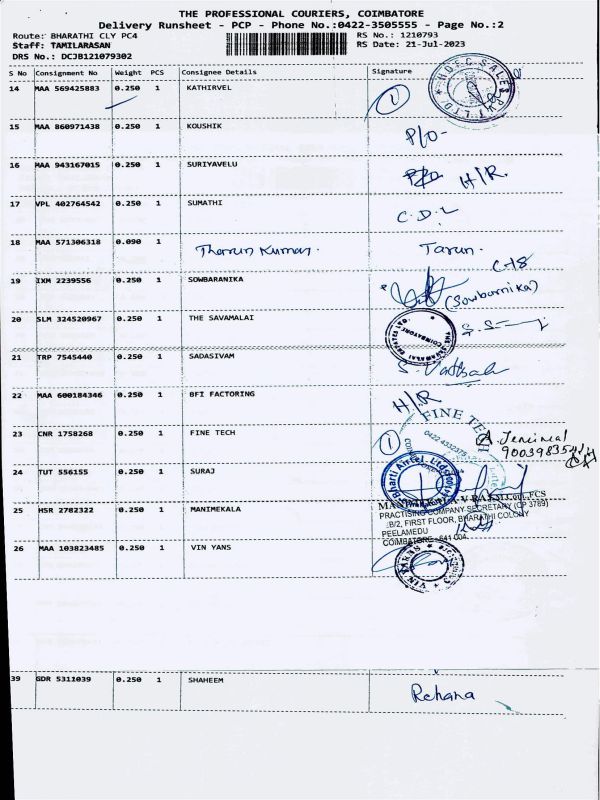 THE PROFESSIONAL COURIERS, COIMBATORE
Delivery Runsheet - PCP - Phone No.:0422-3505555 - Page No.:2
Route: BHARATHI CLY PC4 RS No.: 1210793
Staff: TAMILARASAN RS Date: 21-Jul-2023
DRS No.: DCJB121079302
S No Consignment No Weight PCS Consignee Details Signature
14 MAA 569425883 0.250 1 KATHIRVEL 1 HDFC SALES PVT LTD
15 MAA 860971438 0.250 1 KOUSHIK P/O-
16 MAA 943167015 0.250 1 SURIYAVELU H/R.
17 VPL 402764542 0.250 1 SUMATHI C.D.L
18 MAA 571306318 0.090 1 Tharun Kumar. Tarun.
C-18
19 IXM 2239556 0.250 1 SOWBARANIKA (Sowbarnika)
20 SLM 324520967 0.250 1 THE SAVAMALAI
21 TRP 7545440 0.250 1 SADASIVAM
22 MAA 600184346 1 0.250 BFI FACTORING H/R
23 CNR 1758268 0.250 1 FINE TECH 1 FINE TECH
24 TUT 556155 0.250 1 SURAJ Bharti Airtel Ltd
25 HSR 2782322 0.250 1 MANIMEKALA
PRACTISING COMPANY SECRETARY (CP 3789)
B/2, FIRST FLOOR, BHARATHI COLONY
PEELAMEDU
COIMBATORE - 641 004.
26 MAA 103823485 0.250 1 VIN YANS VIN YARNS
39 GDR 5311039 0.250 1 SHAHEEM Rehana